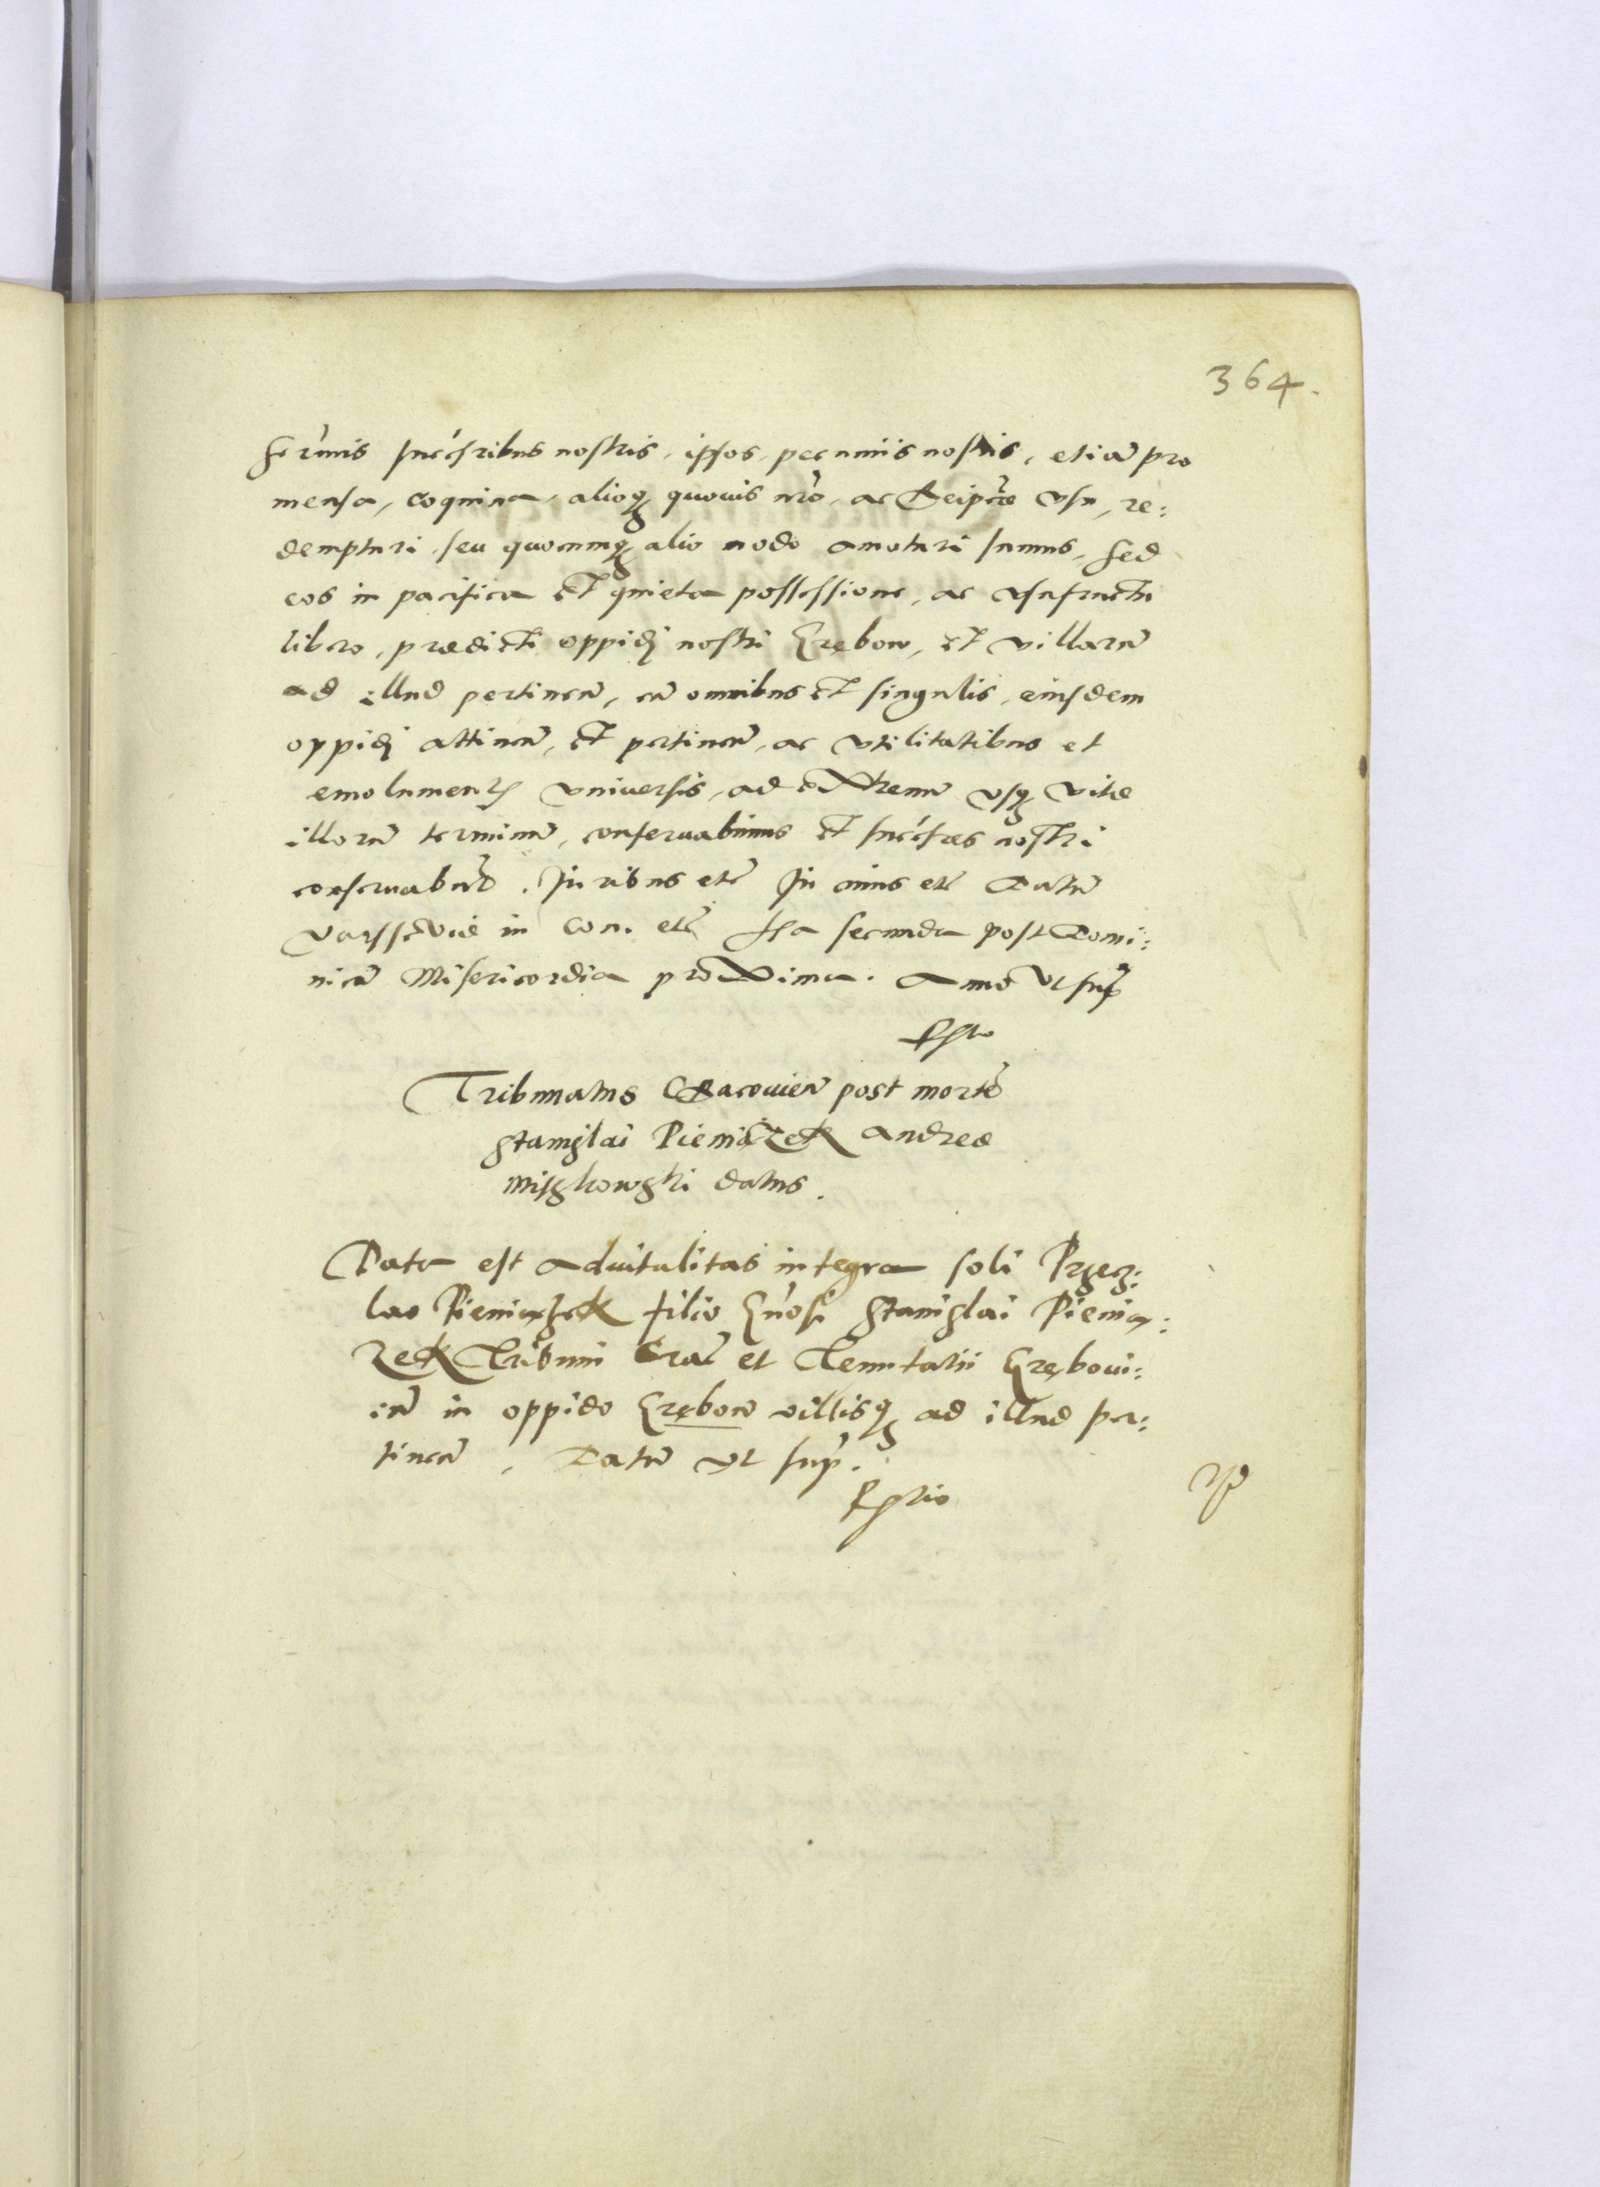 364.
Serīmis succēsoribus nostris, ipsos, pecuniis nostris, etiā pro
mensa, coquina, alioq3 quovis nrō, ac Reipcæ usu, re:
dempturi seu quocunq3 alio modo amoturi sumus, sed
eos in pacifica et quieta possessione, ac usufructu
libero, prædicti oppidi nostri Grębow, et villarū
ad illud pertinen̄, cū omnibus et singulis, eiusdem
oppidi attinen̄, et pertinen̄, ac utilitatibus et
emolumentis universis, ad extremū usq3 vitæ
illorū terminū, conservabimus et succēsores nostri
conservabūt. Juribus etc̄ In cuius etc̄ Datū
Varssēviæ in Con. etc̄ fīa secunda post Domi:
nicā Misericordia proxima. Anno ut sup̄
Tribunatus Cracovien̄ post mortē
Stanislai Pieniązek Andreæ
Mischowski datus.
Data est advitalitas integra soli Przec:
lao Pieniążek filio Gn̄osi Stanislai Pienia:
zek Tribuni Crac̄ et Tenutarii Grębovi:
en̄ in oppido Grębow villisq3 ad illud per:
tinen̄, Datū ut sup̄.